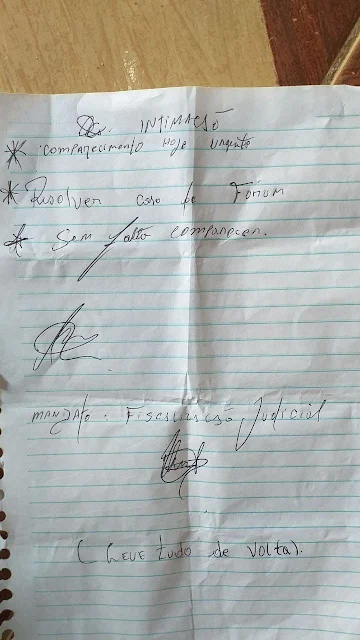 INTIMAÇÃO
* comparecimento Hoje urgente
* Resolver caso do Fórum
* Sem falta comparecer.
MANDATO. Fiscalização Judicial
(Leve tudo de volta).